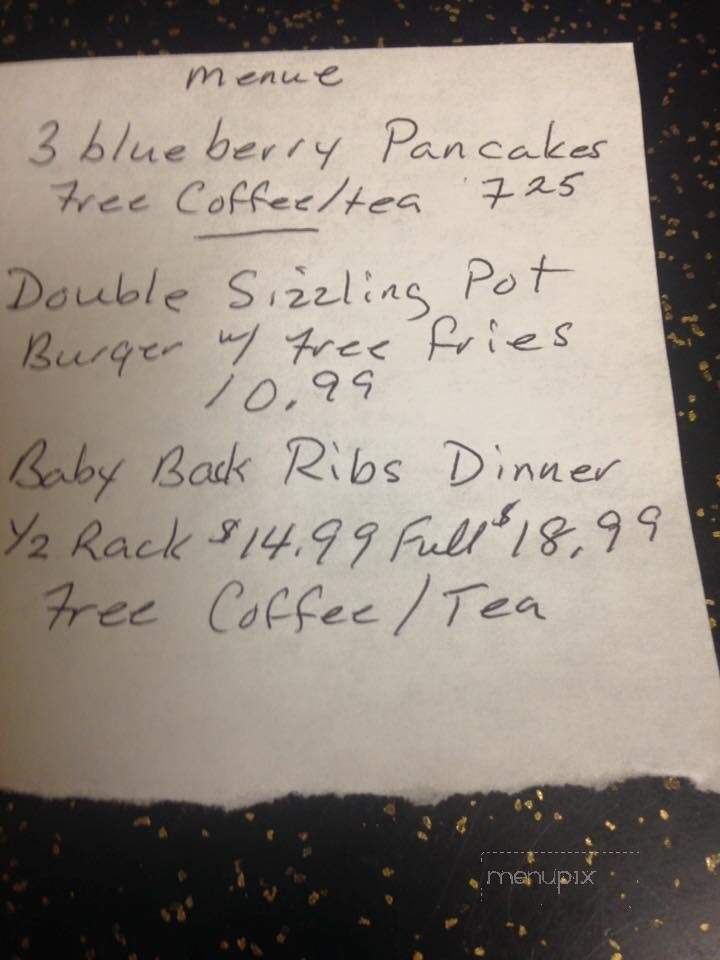 menue
3 blueberry Pancakes
Free Coffee/tea 7 25
Double Sizzling Pot
Burger w/ free fries
10.99
Baby Back Ribs Dinner
1/2 Rack $14.99 Full $18.99
Free Coffee/Tea
menupix